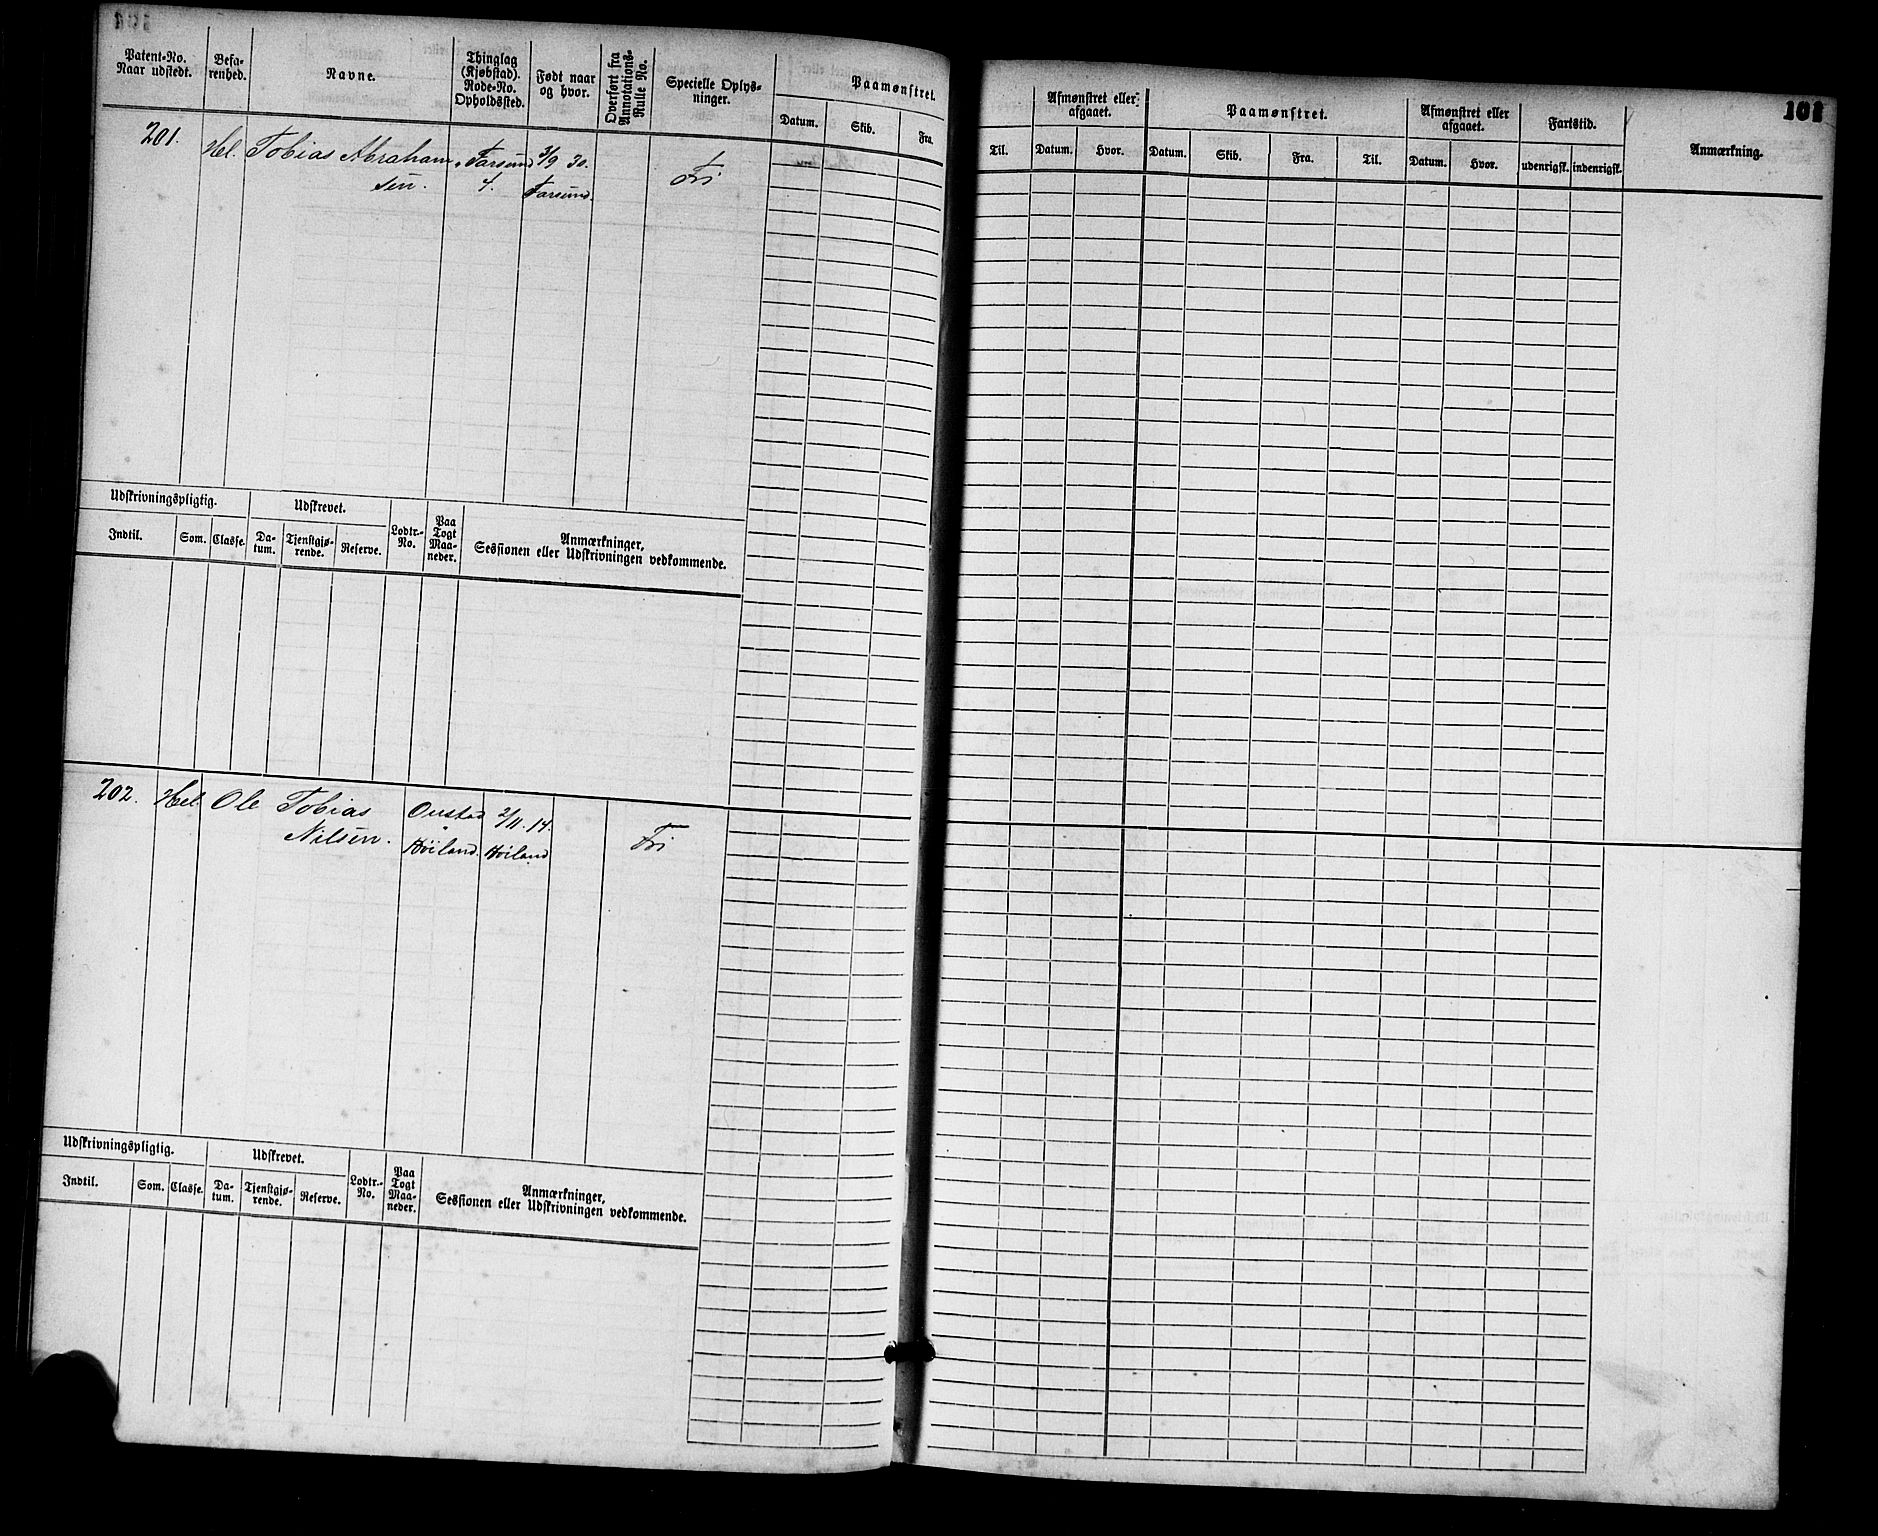 101
Patent-No.
Naar udstedt.
Befa-
renhed.
Navne.
Thinglag
(Kjøbstad).
Rode-No.
Opholdssted.
Født naar
og hvor.
Overført fra
Annotations-
Rulle No.
Specielle Oplys-
ninger.
Paamønstret.
Datum. Skib. Fra.
Til.
Afmønstret eller
afgaaet.
Datum. Hvor.
Paamønstret.
Datum. Skib. Fra. Til.
Afmønstret eller
afgaaet.
Datum. Hvor.
Fartstid.
udenrigsk. indenrigsk.
Anmærkning.
201. Hel. Tobias Abraham- Farsund 3/9 30. Fri
sen. 4. Farsund.
Udskrivningspligtig. Udskrevet.
Indtil. Som. Classe. Da-
tum. Tjenstgjø-
rende. Reserve. Lodtr.-
No. Paa
Togt
Maa-
neder.
Anmærkninger,
Sessionen eller Udskrivningen vedkommende.
202. Hel. Ole Tobias 2/11. 14. Fri
Nilsen. Høiland. Høiland
Udskrivningspligtig. Udskrevet.
Indtil. Som. Classe. Da-
tum. Tjenstgjø-
rende. Reserve. Lodtr.-
No. Paa
Togt
Maa-
neder.
Anmærkninger,
Sessionen eller Udskrivningen vedkommende.